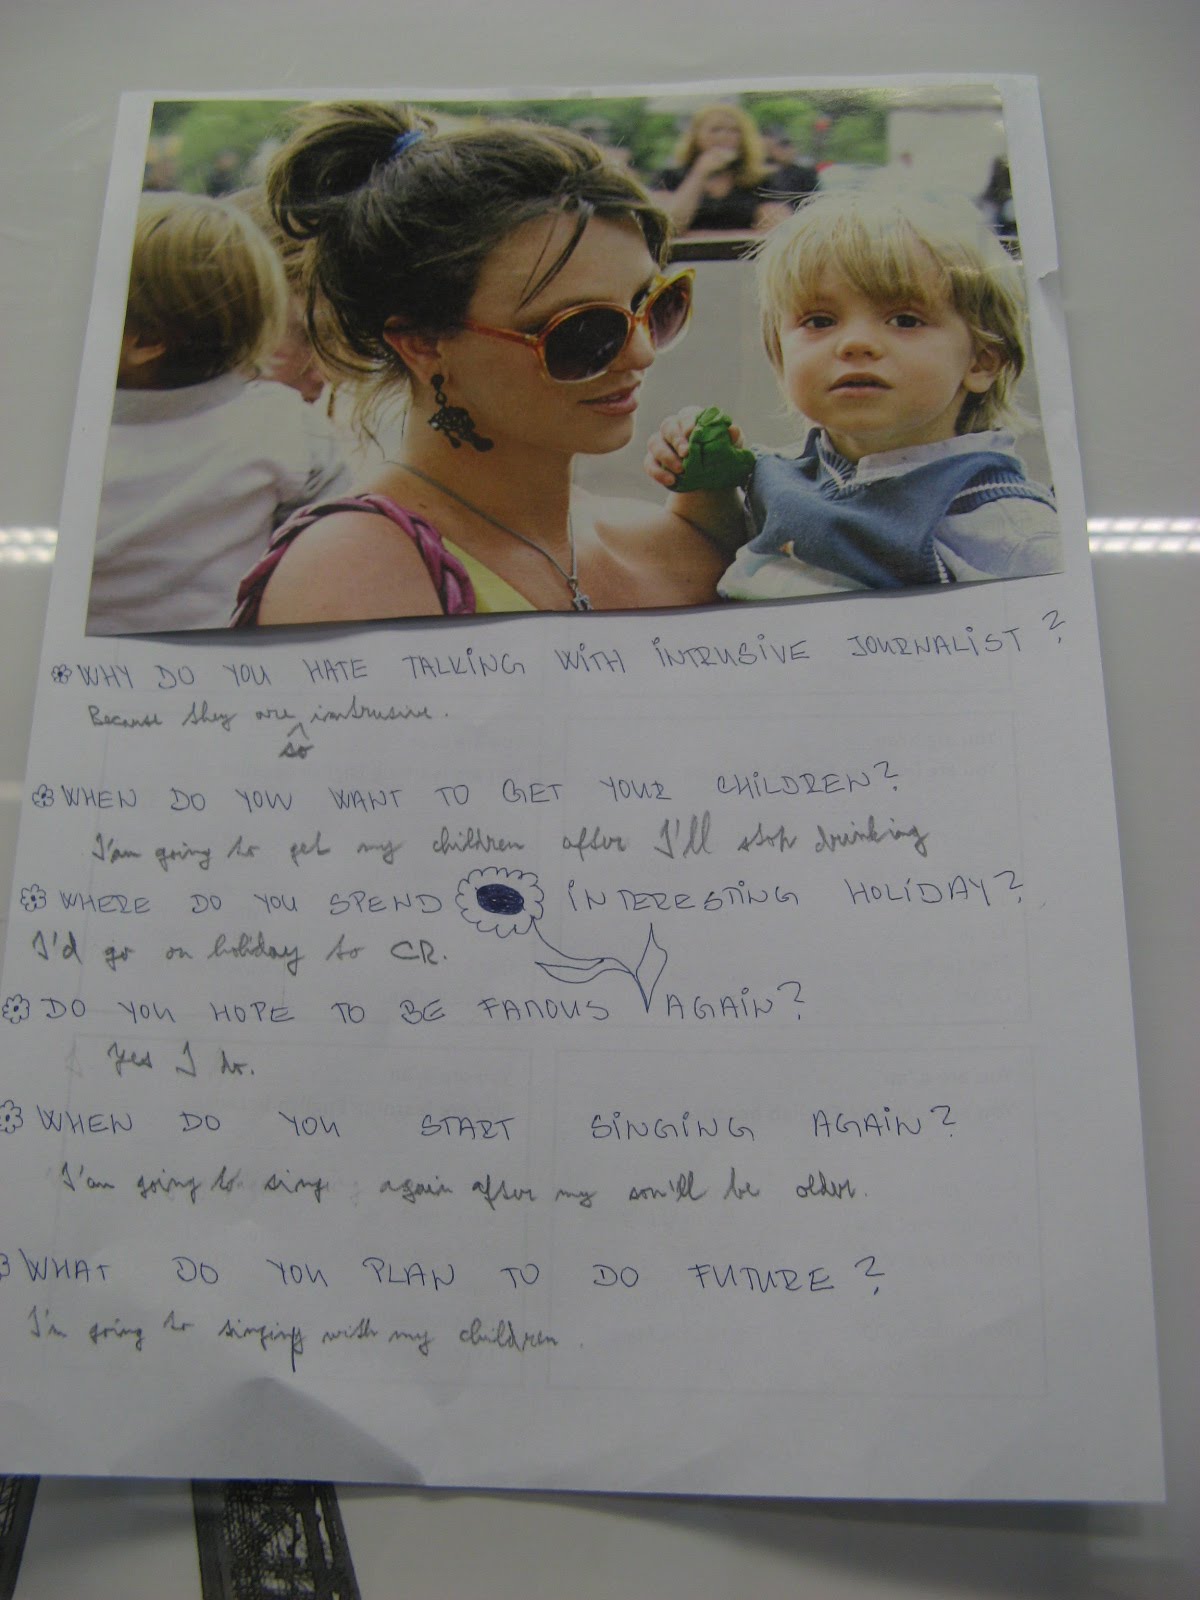 WHY DO YOU HATE TALKING WITH INTRUSIVE JOURNALIST ?
Because they are so intrusive.
WHEN DO YOU WANT TO GET YOUR CHILDREN?
I'am going to get my children after I'll stop drinking
WHERE DO YOU SPEND INTERESTING HOLIDAY?
I'd go on holiday to CR.
DO YOU HOPE TO BE FAMOUS AGAIN?
Yes I do.
WHEN DO YOU START SINGING AGAIN?
I'am going to sing again after my son'll be older.
WHAT DO YOU PLAN TO DO FUTURE ?
I'm going to singing with my children.